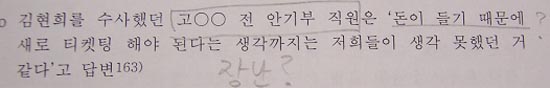 o 김현희를 수사했던 고○○ 전 안기부 직원은 ‘돈이 들기 때문에 ?
새로 티켓팅 해야 된다는 생각까지는 저희들이 생각 못했던 거
같다’고 답변163)
장난?